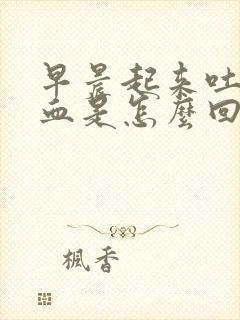 早晨起来吐
血是怎麼回
楓香